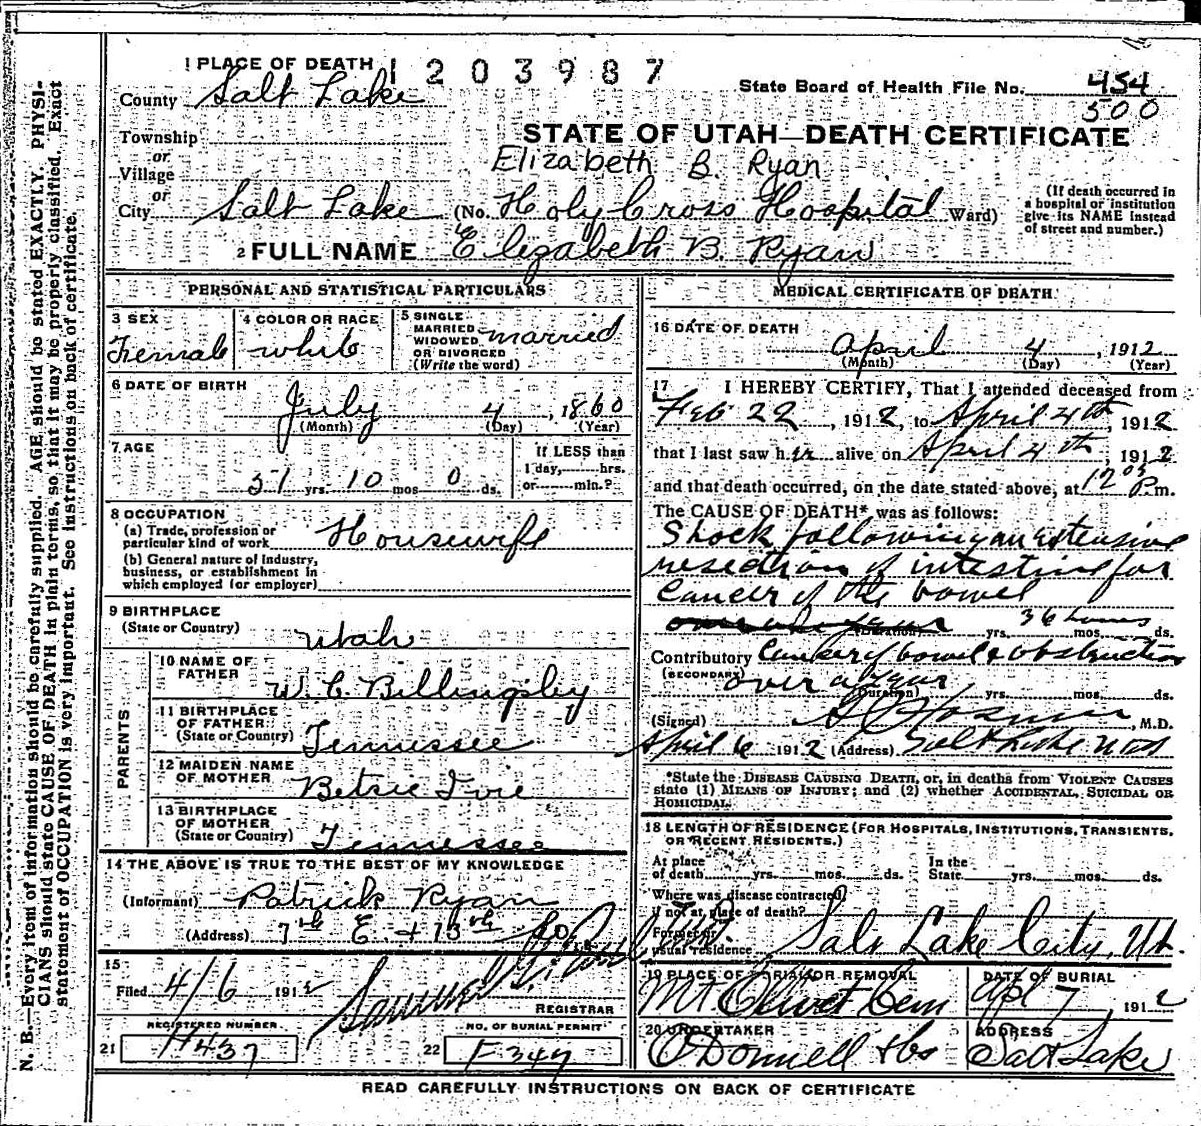 1 PLACE OF DEATH 1203987
State Board of Health File No. 454
500
County Salt Lake
STATE OF UTAH—DEATH CERTIFICATE
Township
or
Village
Elizabeth B. Ryan
or
City Salt Lake (No. Holy Cross Hospital Ward)
(If death occurred in a hospital or institution give its NAME instead of street and number.)
2 FULL NAME Elizabeth B. Ryan
PERSONAL AND STATISTICAL PARTICULARS
3 SEX
Female
4 COLOR OR RACE
white
5 SINGLE
MARRIED
WIDOWED
OR DIVORCED
(Write the word)
married
6 DATE OF BIRTH
July 4, 1860
(Month) (Day) (Year)
7 AGE
51 yrs. 10 mos 0 ds.
If LESS than
1 day, hrs.
or min.?
8 OCCUPATION
(a) Trade, profession or
particular kind of work Housewife
(b) General nature of Industry,
business, or establishment in
which employed (or employer)
9 BIRTHPLACE
(State or Country)
Utah
PARENTS
10 NAME OF
FATHER
W. C. Billingsley
11 BIRTHPLACE
OF FATHER
(State or Country)
Tennessee
12 MAIDEN NAME
OF MOTHER
Betsie Ivie
13 BIRTHPLACE
OF MOTHER
(State or Country)
Tennessee
14 THE ABOVE IS TRUE TO THE BEST OF MY KNOWLEDGE
(Informant) Patrick Ryan
(Address) 7th E. + 13th So
15
Filed 4/6 1912
REGISTRAR
REGISTERED NUMBER
21 H437
NO. OF BURIAL PERMIT
22 F347
MEDICAL CERTIFICATE OF DEATH
16 DATE OF DEATH
April 4, 1912
(Month) (Day) (Year)
17 I HEREBY CERTIFY, That I attended deceased from
Feb 22, 1912, to April 4th, 1912
that I last saw her alive on April 4th 1912
and that death occurred, on the date stated above, at 12 05 P.m.
The CAUSE OF DEATH* was as follows:
Shock following an extensive
resection of intestine for
Cancer of the bowel
(Duration) yrs. 36 hours mos. ds.
Contributory Cancer of bowel & obstruction
(SECONDARY) over a year
(Duration) yrs. mos. ds.
(Signed) M.D.
April 6 1912 (Address) Salt Lake Utah
*State the DISEASE CAUSING DEATH, or, in deaths from VIOLENT CAUSES
state (1) MEANS OF INJURY; and (2) whether ACCIDENTAL, SUICIDAL OR
HOMICIDAL.
18 LENGTH OF RESIDENCE (FOR HOSPITALS, INSTITUTIONS, TRANSIENTS,
OR RECENT RESIDENTS.)
At place
of death yrs. mos. ds.
In the
State yrs. mos. ds.
Where was disease contracted,
if not at place of death?
Former or
usual residence Salt Lake City, Ut.
19 PLACE OF BURIAL OR REMOVAL
Mt Olivet Cem
DATE OF BURIAL
Apl 7, 1912
20 UNDERTAKER
O'Donnell & Co
ADDRESS
Salt Lake
READ CAREFULLY INSTRUCTIONS ON BACK OF CERTIFICATE
N. B.—Every item of information should be carefully supplied. AGE should be stated EXACTLY. PHYSI-
CIANS should state CAUSE OF DEATH in plain terms, so that it may be properly classified. Exact
statement of OCCUPATION is very important. See instructions on back of certificate.